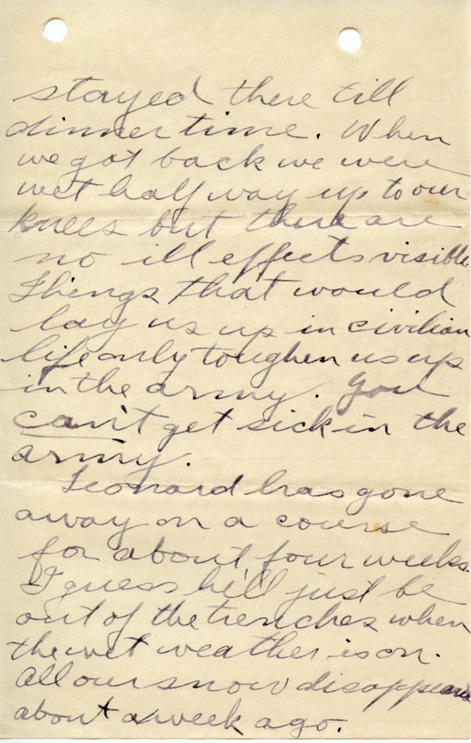 stayed there till
dinner time. When
we got back we were
wet half way up to our
knees but there are
no ill effects visible
Things that would
lay us up in civilian
life only toughen us up
in the army. You
can't get sick in the
army.
Leonard has gone
away on a course
for about four weeks.
I guess he'll just be
out of the trenches when
the wet weather is on.
All our snow disappeared
about a week ago.